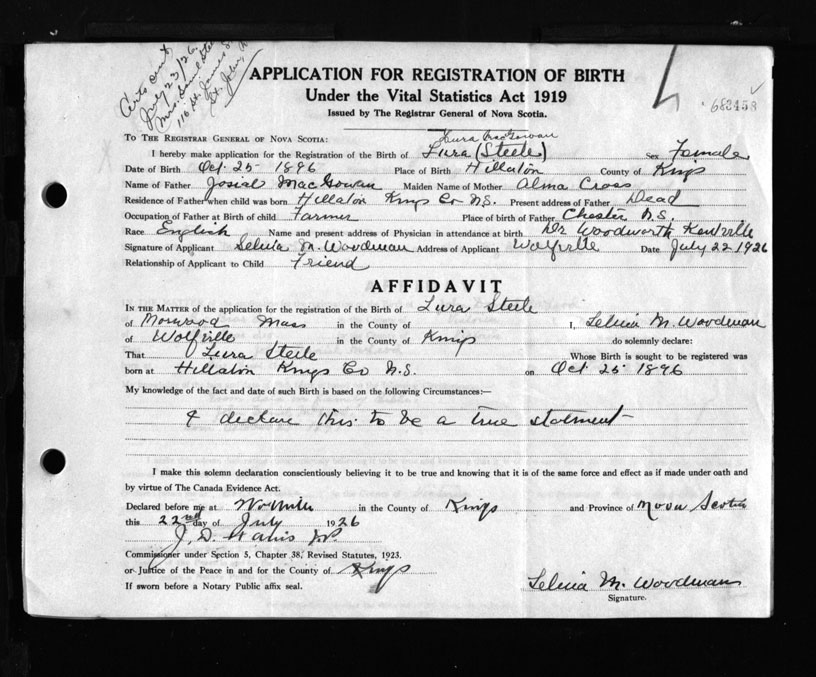 Certs sent
July 23/26
Mrs.
116 St. James St.
St. John, N
APPLICATION FOR REGISTRATION OF BIRTH
Under the Vital Statistics Act 1919
Issued by The Registrar General of Nova Scotia.
68345
Lura MacGowan
TO THE REGISTRAR GENERAL OF NOVA SCOTIA:
I hereby make application for the Registration of the Birth of Lura (Steele) Sex Female
Date of Birth Oct. 25 1896 Place of Birth Hillaton County of Kings
Name of Father Josiah MacGowan Maiden Name of Mother Alma Cross
Residence of Father when child was born Hillaton Kings Co N.S. Present address of Father Dead
Occupation of Father at Birth of child Farmer Place of birth of Father Chester N.S.
Race English Name and present address of Physician in attendance at birth Dr Woodworth Kentville
Signature of Applicant Selina M. Woodman Address of Applicant Wolfville Date July 22 1926
Relationship of Applicant to Child Friend
AFFIDAVIT
IN THE MATTER of the application for the registration of the Birth of Lura Steele
of Norwood Mass in the County of I, Selina M. Woodman
of Wolfville in the County of Kings do solemnly declare:
That Lura Steele Whose Birth is sought to be registered was
born at Hillaton Kings Co N.S. on Oct 25 1896
My knowledge of the fact and date of such Birth is based on the following Circumstances:—
I declare this to be a true statment
I make this solemn declaration conscientiously believing it to be true and knowing that it is of the same force and effect as if made under oath and
by virtue of The Canada Evidence Act.
Declared before me at Wolfville in the County of Kings and Province of Nova Scotia
this 22nd day of July 1926
J. D.
Commissioner under Section 5, Chapter 38, Revised Statutes, 1923.
or Justice of the Peace in and for the County of Kings
If sworn before a Notary Public affix seal.
Selina M. Woodman
Signature.